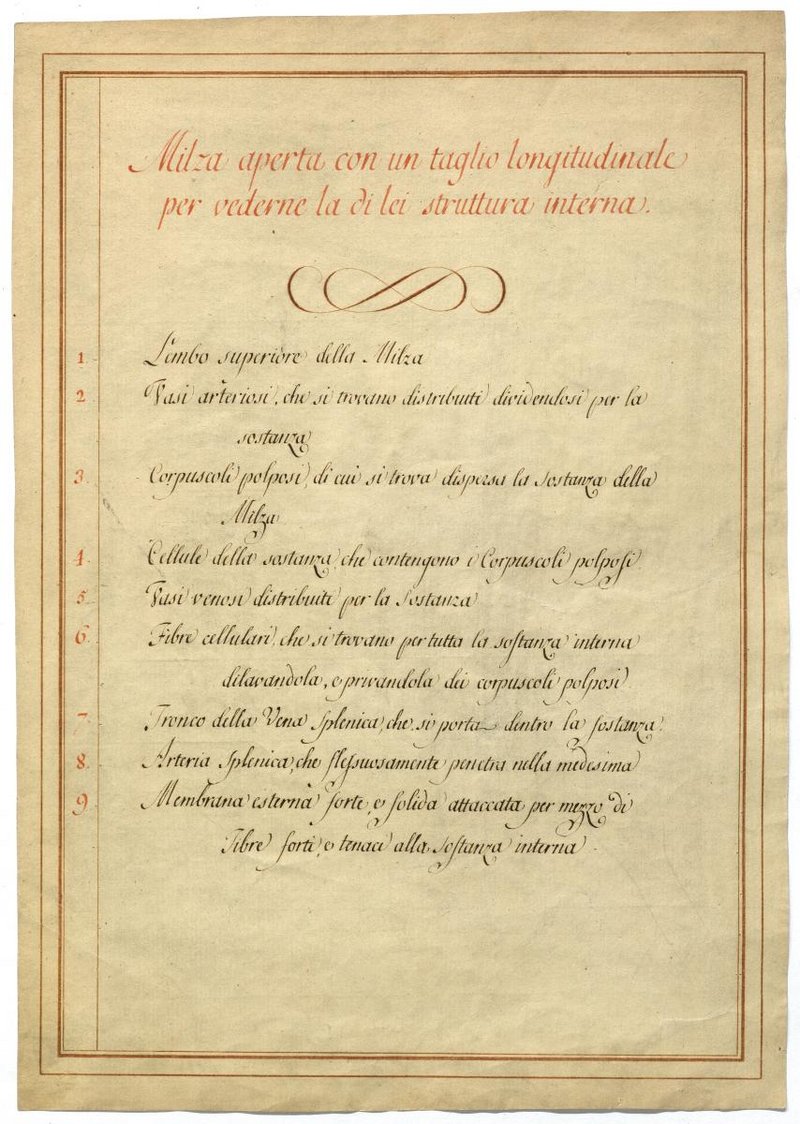 Milza aperta con un taglio longitudinale
per vederne la di lei struttura interna.
1. Lembo superiore della Milza
2. Vasi arteriosi, che si trovano distribuiti dividendosi per la
sostanza
3. Corpuscoli polposi, di cui si trova dispersa la Sostanza della
Milza
4. Cellule della sostanza, che contengono i Corpuscoli polposi
5. Vasi venosi distribuiti per la Sostanza
6. Fibre cellulari, che si trovano per tutta la sostanza interna
dilavandola, e privandola dei corpuscoli polposi
7. Tronco della Vena Splenica, che si porta dentro la sostanza.
8. Arteria Splenica, che flessuosamente penetra nella medesima
9 Membrana esterna forte, e solida attaccata per mezzo di
Fibre forti, e tenaci alla Sostanza interna.